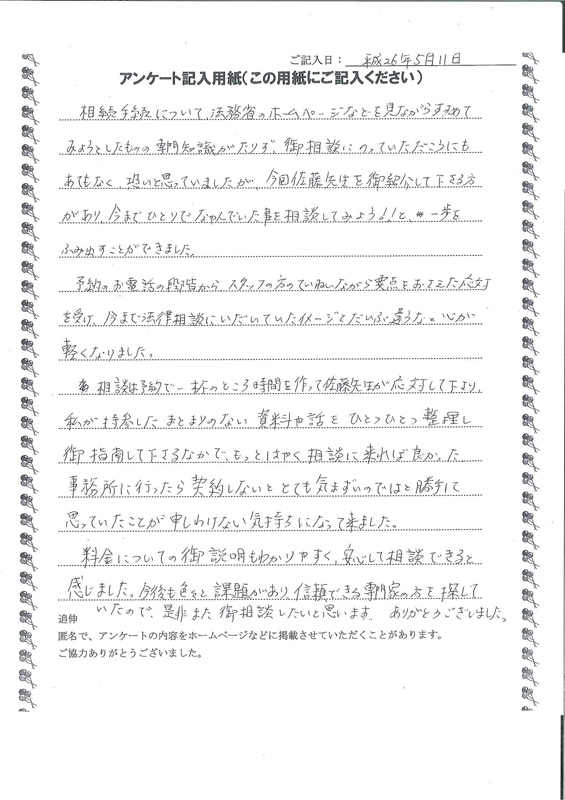 ご記入日： 平成26年5月11日
アンケート記入用紙（この用紙にご記入ください）
相続手続について、法務省のホームページなどを見ながらすすめて
みようとしたものの専門知識がたりず、御相談にのっていただこうにも
あてもなく、恐いと思っていましたが、今回佐藤先生を御紹介して下さる方
があり、今までひとりでなやんでいた事を相談してみよう！！と、一歩を
ふみ出すことができました。
予約のお電話の段階から スタッフの方のていねいながら要点をおさえた応対
を受け、今まで法律相談にいだいていたイメージとだいぶ違うな。と心が
軽くなりました。
相談は予約で一杯のところ時間を作って佐藤先生が応対して下さり、
私が持参した まとまりのない 資料や話を ひとつひとつ 整理し
御指南して下さるなかで、もっとはやく相談に来れば良かった
事務所に行ったら契約しないと とても気まずいのではと勝手に
思っていたことが申しわけない気持ちになって来ました。
料金についての御説明もわかりやすく、安心して相談できると
感じました。今後も色々と課題があり 信頼できる専門家の方を探して
いたので、是非また御相談したいと思います。 ありがとうございました。
追伸
匿名で、アンケートの内容をホームページなどに掲載させていただくことがあります。
ご協力ありがとうございました。